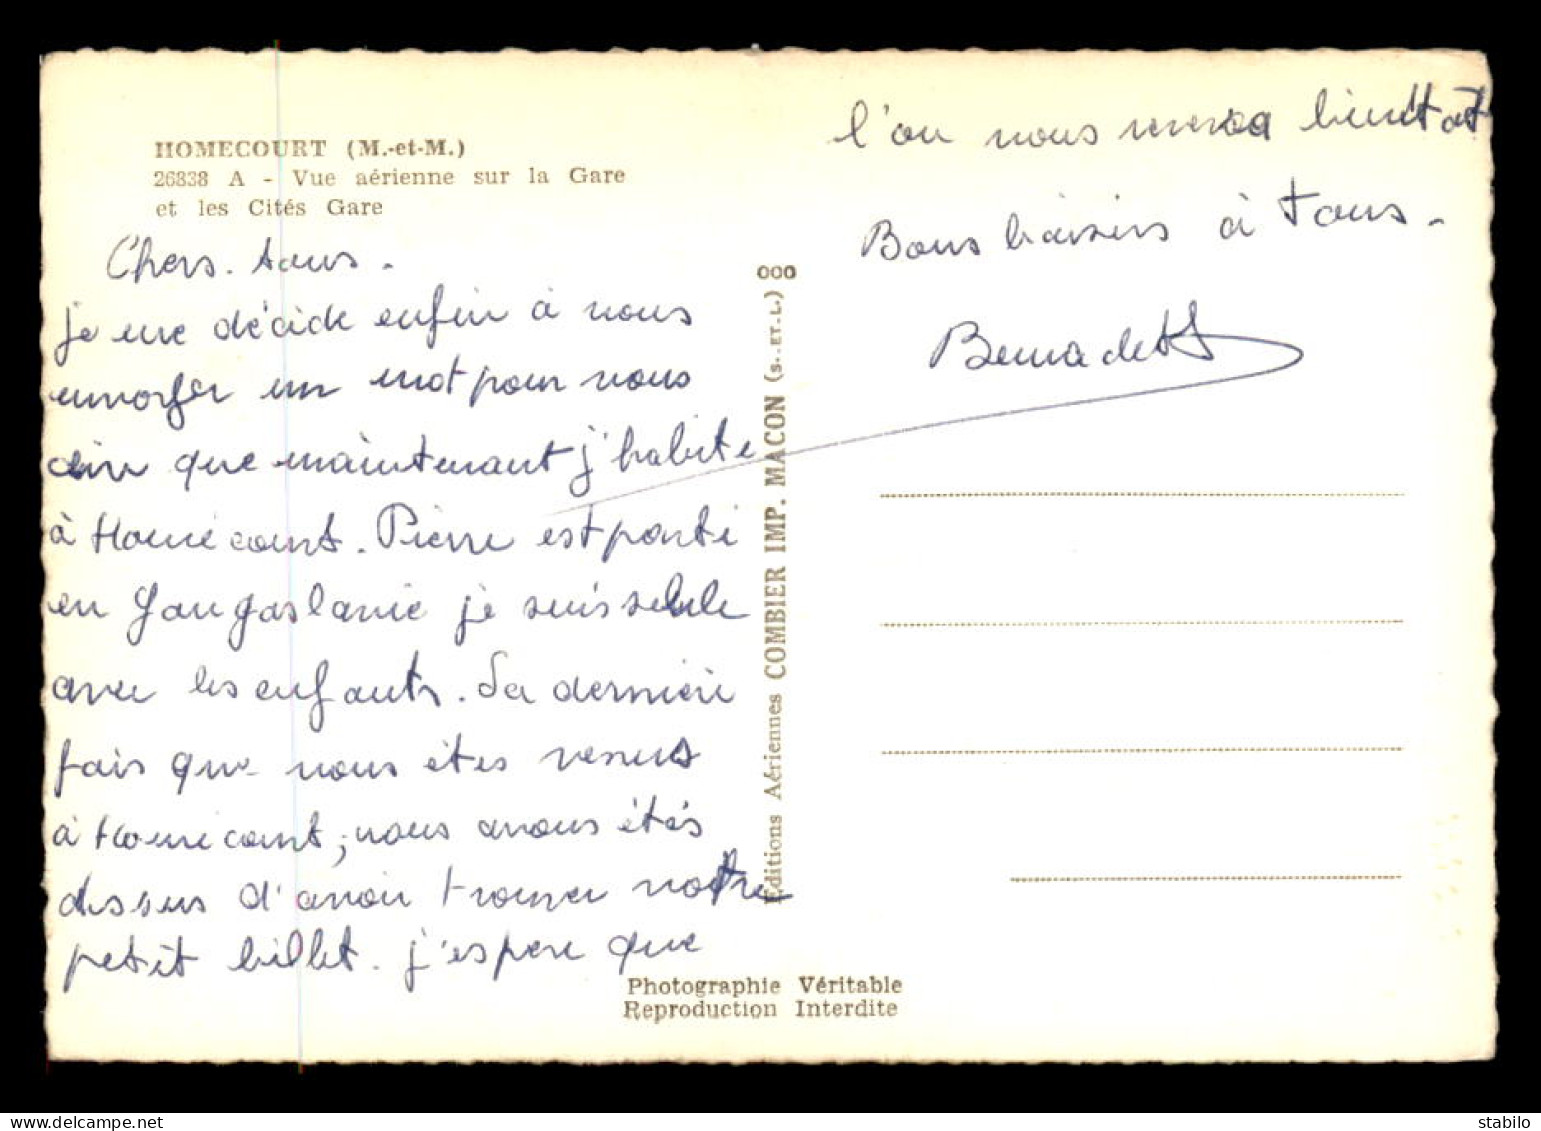 HOMECOURT (M.-et-M.)
26838 A - Vue aérienne sur la Gare
et les Cités Gare
Chers tous.
je me décide enfin à vous
envoyer un mot pour vous
dire que maintenant j'habite
à Homécourt. Pierre est parti
en Yougoslavie je suis seule
avec les enfants. La dernière
fois que vous êtes venus
à Homécourt, nous avons étés
dessus d'avoir trouver votre
petit billet. j'espère que
l'on vous reverra bientôt
Bons baisers à tous.
Bernadette
Editions Aériennes COMBIER IMP. MACON (S.-ET-L.) 000
Photographie Véritable
Reproduction Interdite
delcampe.net
stabilo